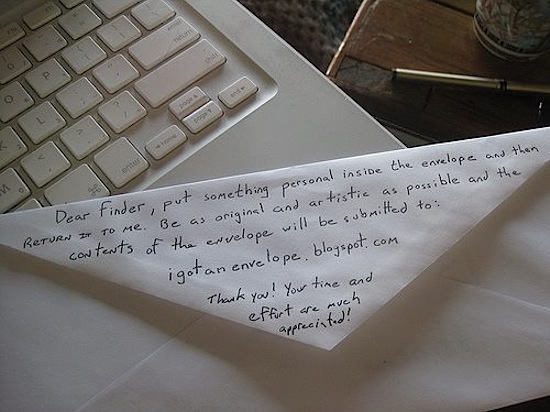 Dear Finder, put something personal inside the envelope and then
RETURN IT TO ME. Be as original and artistic as possible and the
contents of the envelope will be submitted to:
igotanenvelope.blogspot.com
Thank you! Your time and
effort are much
appreciated!
return
shift
enter
page
page
home
end
P
O
L
K
M